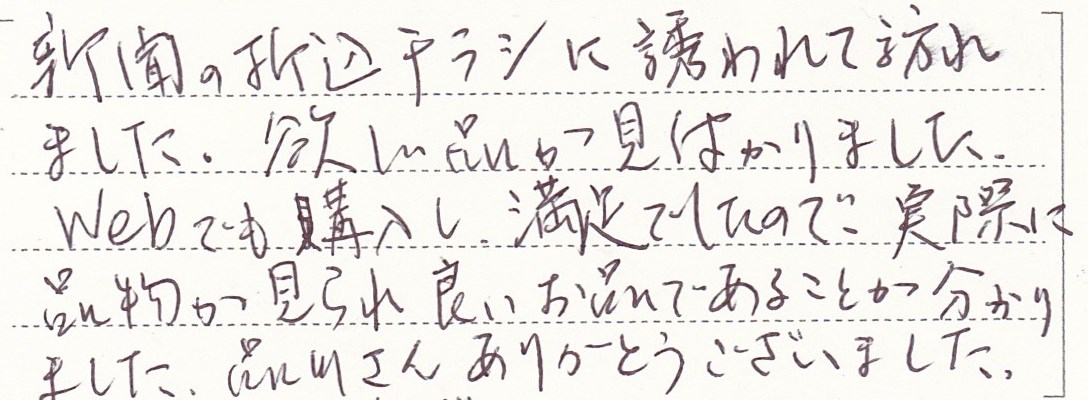 新聞の折込チラシに誘われて訪れ
ました。欲しい品が見ばかりました。
Webでも購入し、満足でしたので実際に
品物が見られ良いお品であることが分かり
ました。品川さんありがとうございました。